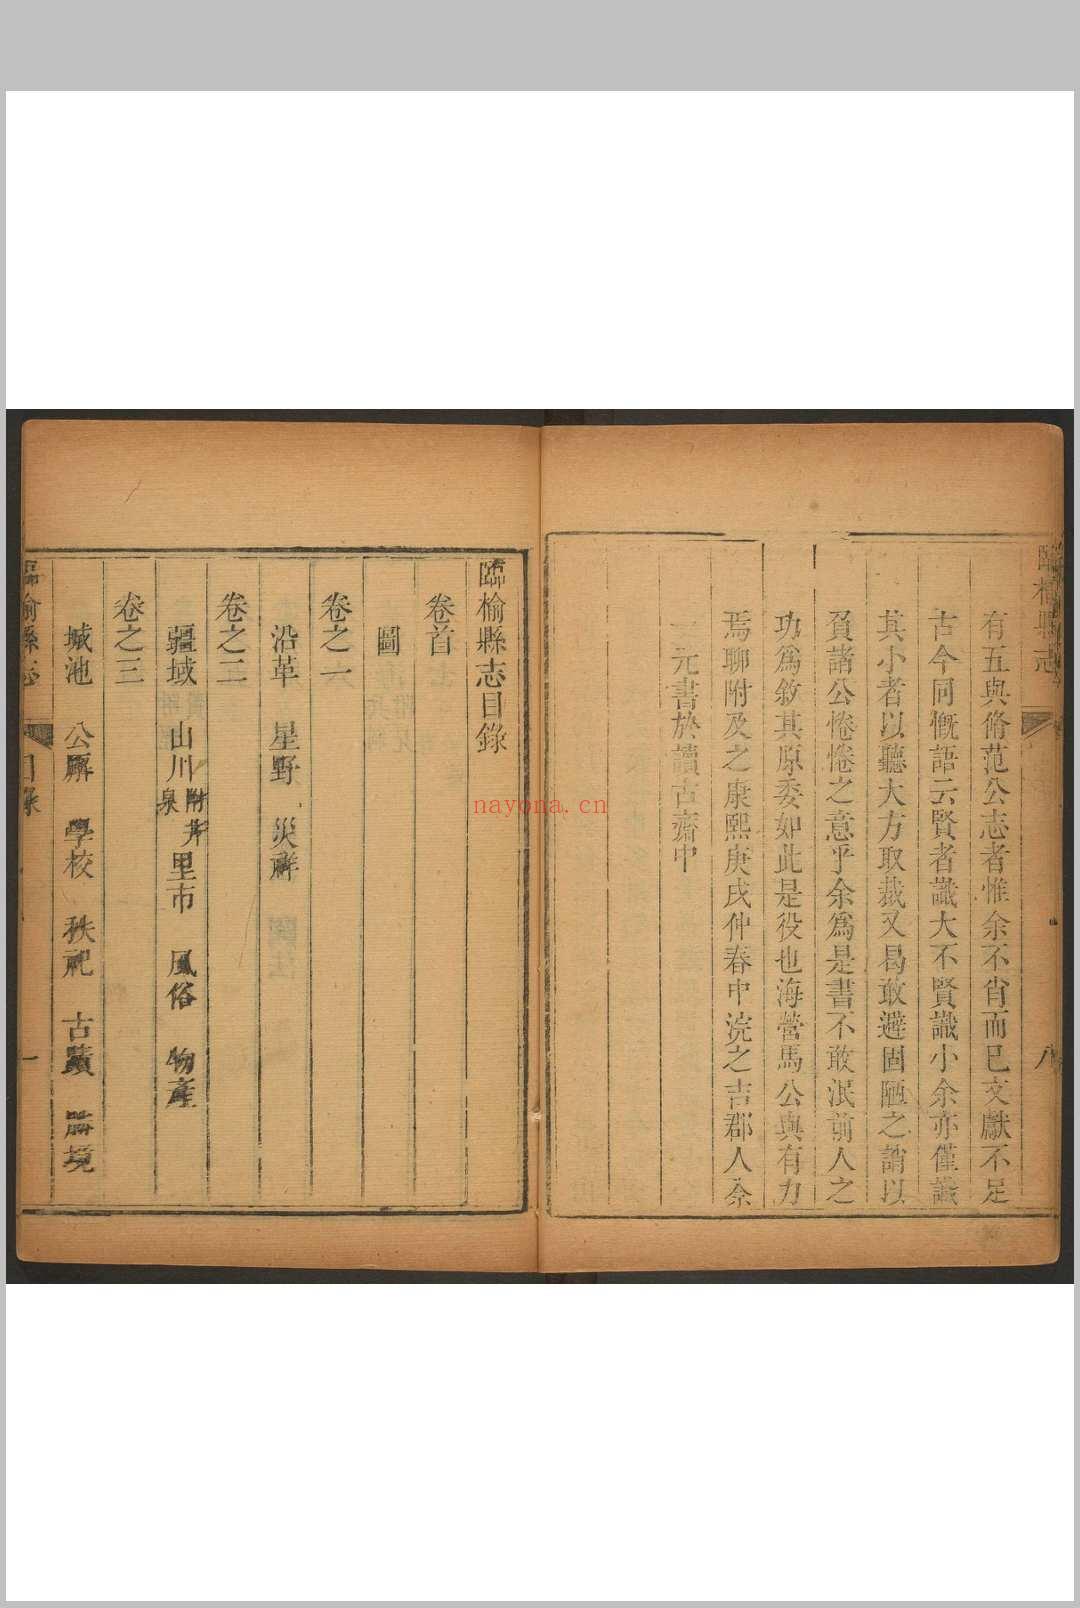 臨榆縣志
八
有五與脩范公志者惟余不肖而已文獻不足
古今同慨語云賢者識大不賢識小余亦僅識
其小者以聽大方取裁又曷敢避固陋之誚以
負諸公惓惓之意乎余爲是書不敢泯前人之
功爲敘其原委如此是役也海營馬公與有力
焉聊附及之康熙庚戌仲春中浣之吉郡人佘
一元書於讀古齋中
臨榆縣志目錄
卷首
圖
卷之一
沿革 星野 災祥
卷之二
疆域 山川 附井泉 里市 風俗 物產
卷之三
城池 公廨 學校 秩祀 古蹟 勝境
臨榆縣志 目錄 一
nayona.cn